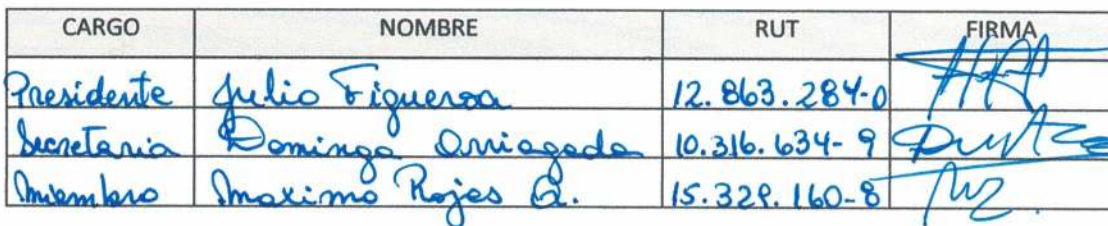 CARGO NOMBRE RUT FIRMA
Presidente Julio Figueroa 12.863.284-0
Secretaria Dominga Arriagada 10.316.634-9
Miembro Maximo Rojas Q. 15.329.160-8